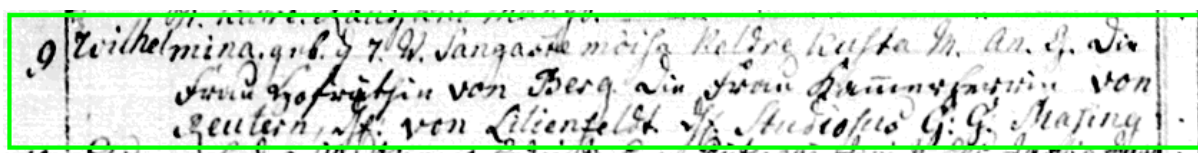 9 Wilhelmina. geb. d 7. V. Sangaste moisa Keldre Kusta M. An. G. Die
Frau Hofräthin von Berg Die Frau Kammerherrin von
Reutern, H. von Lilienfeldt H. Studiosus G. G. Masing